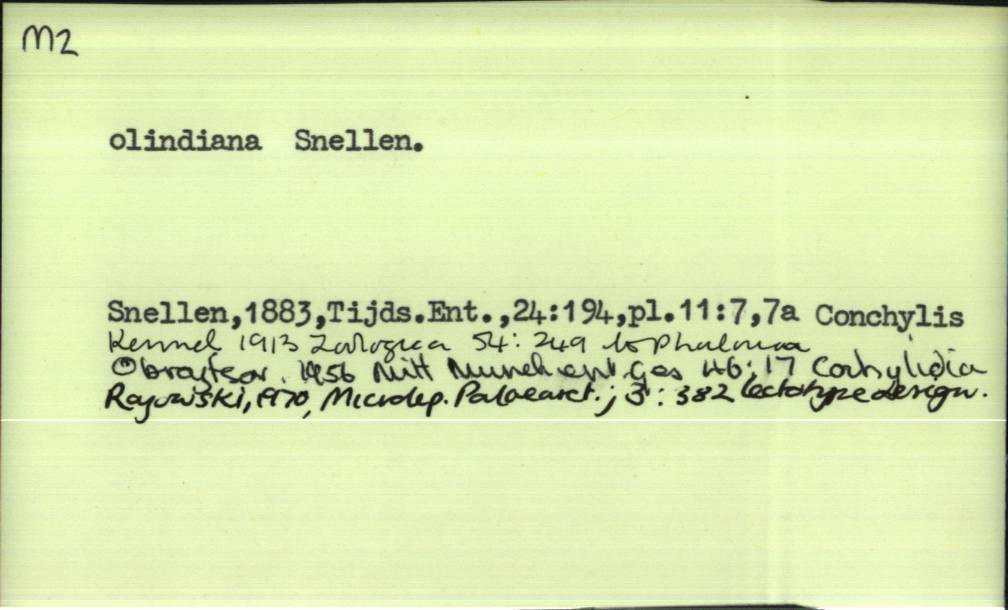 M2
olindiana Snellen.
Snellen,1883,Tijds.Ent.,24:194,pl.11:7,7a Conchylis
Kennel 1913 Zoologica 54: 249 to Phalonia
Obraztsov. 1956 Mitt Munch ent Ges 46:17 Cochylidia
Razowski, 1970, Microlep. Palaearct.; 3: 382 lectotype design.